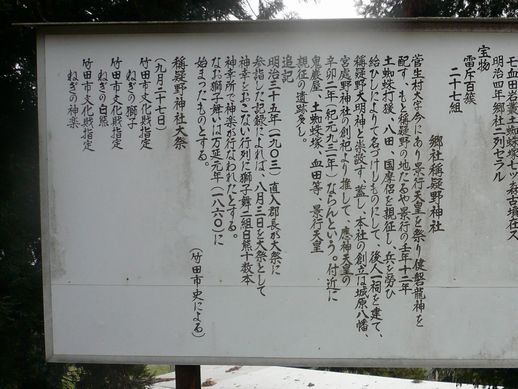 七血田岩瀬土蜘蛛塚七ッ森古墳在ス
明治四年郷社ニ列セラル
宝物
雷斥百箙
二十七組
郷社稱疑野神社
菅生村大字今にあり景行天皇を祭り健磐龍神を
配す。もと稱疑野の地たるや景行の壬年十二年
土蜘蛛打猨、八田、国摩侶を親征し、兵を労ひ
給ひしによりて名づけしものにして、後人一祠を建て、
稱疑野大明神と崇設す、蓋し、本社の創立は城原八幡、
宮處野神社の創祀より推して、應神天皇の
辛卯二年(紀元九三一年)ならんという。付近に
鬼巌屋、土蜘蛛塚、血田等、景行天皇
親征の遺跡多し。
追記
明治三十五年(一九〇三)直入郡長が大祭に
参指した記録によれば、八月三日を大祭として
神幸をおこない行列に獅子舞二組白熊十数本
神幸所で神楽が行なわれたとする。
なお獅子舞いは万延元年(一八六〇)に
始まったものとする。
(竹田市史による)
稱疑野神社大祭
(九月二十七日)
竹田市文化財指定
ねぎの獅子
竹田市文化財指定
ねぎの白熊
竹田市文化財指定
ねぎの神楽